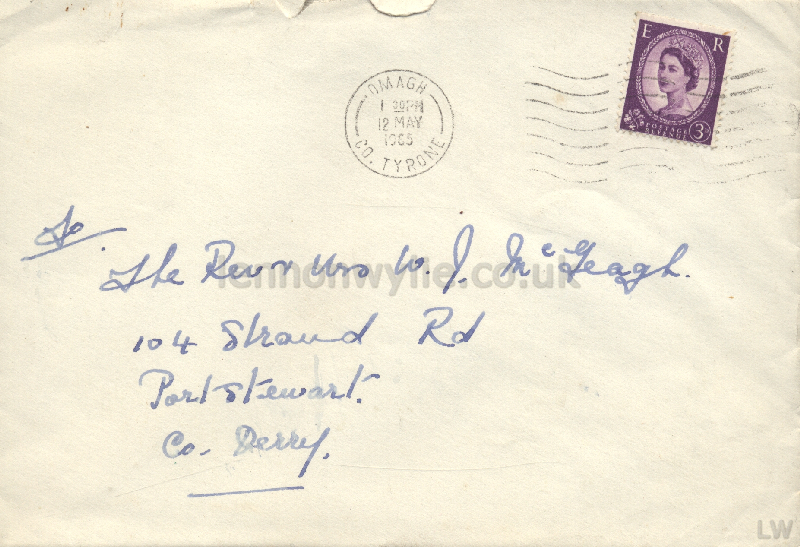 OMAGH
1 30PM
12 MAY
1965
CO. TYRONE
E R
POSTAGE
REVENUE
3D
To
The Rev & Mrs W. J. McGeagh.
lennonwylie.co.uk
104 Strand Rd
Portstewart.
Co. Derry.
LW